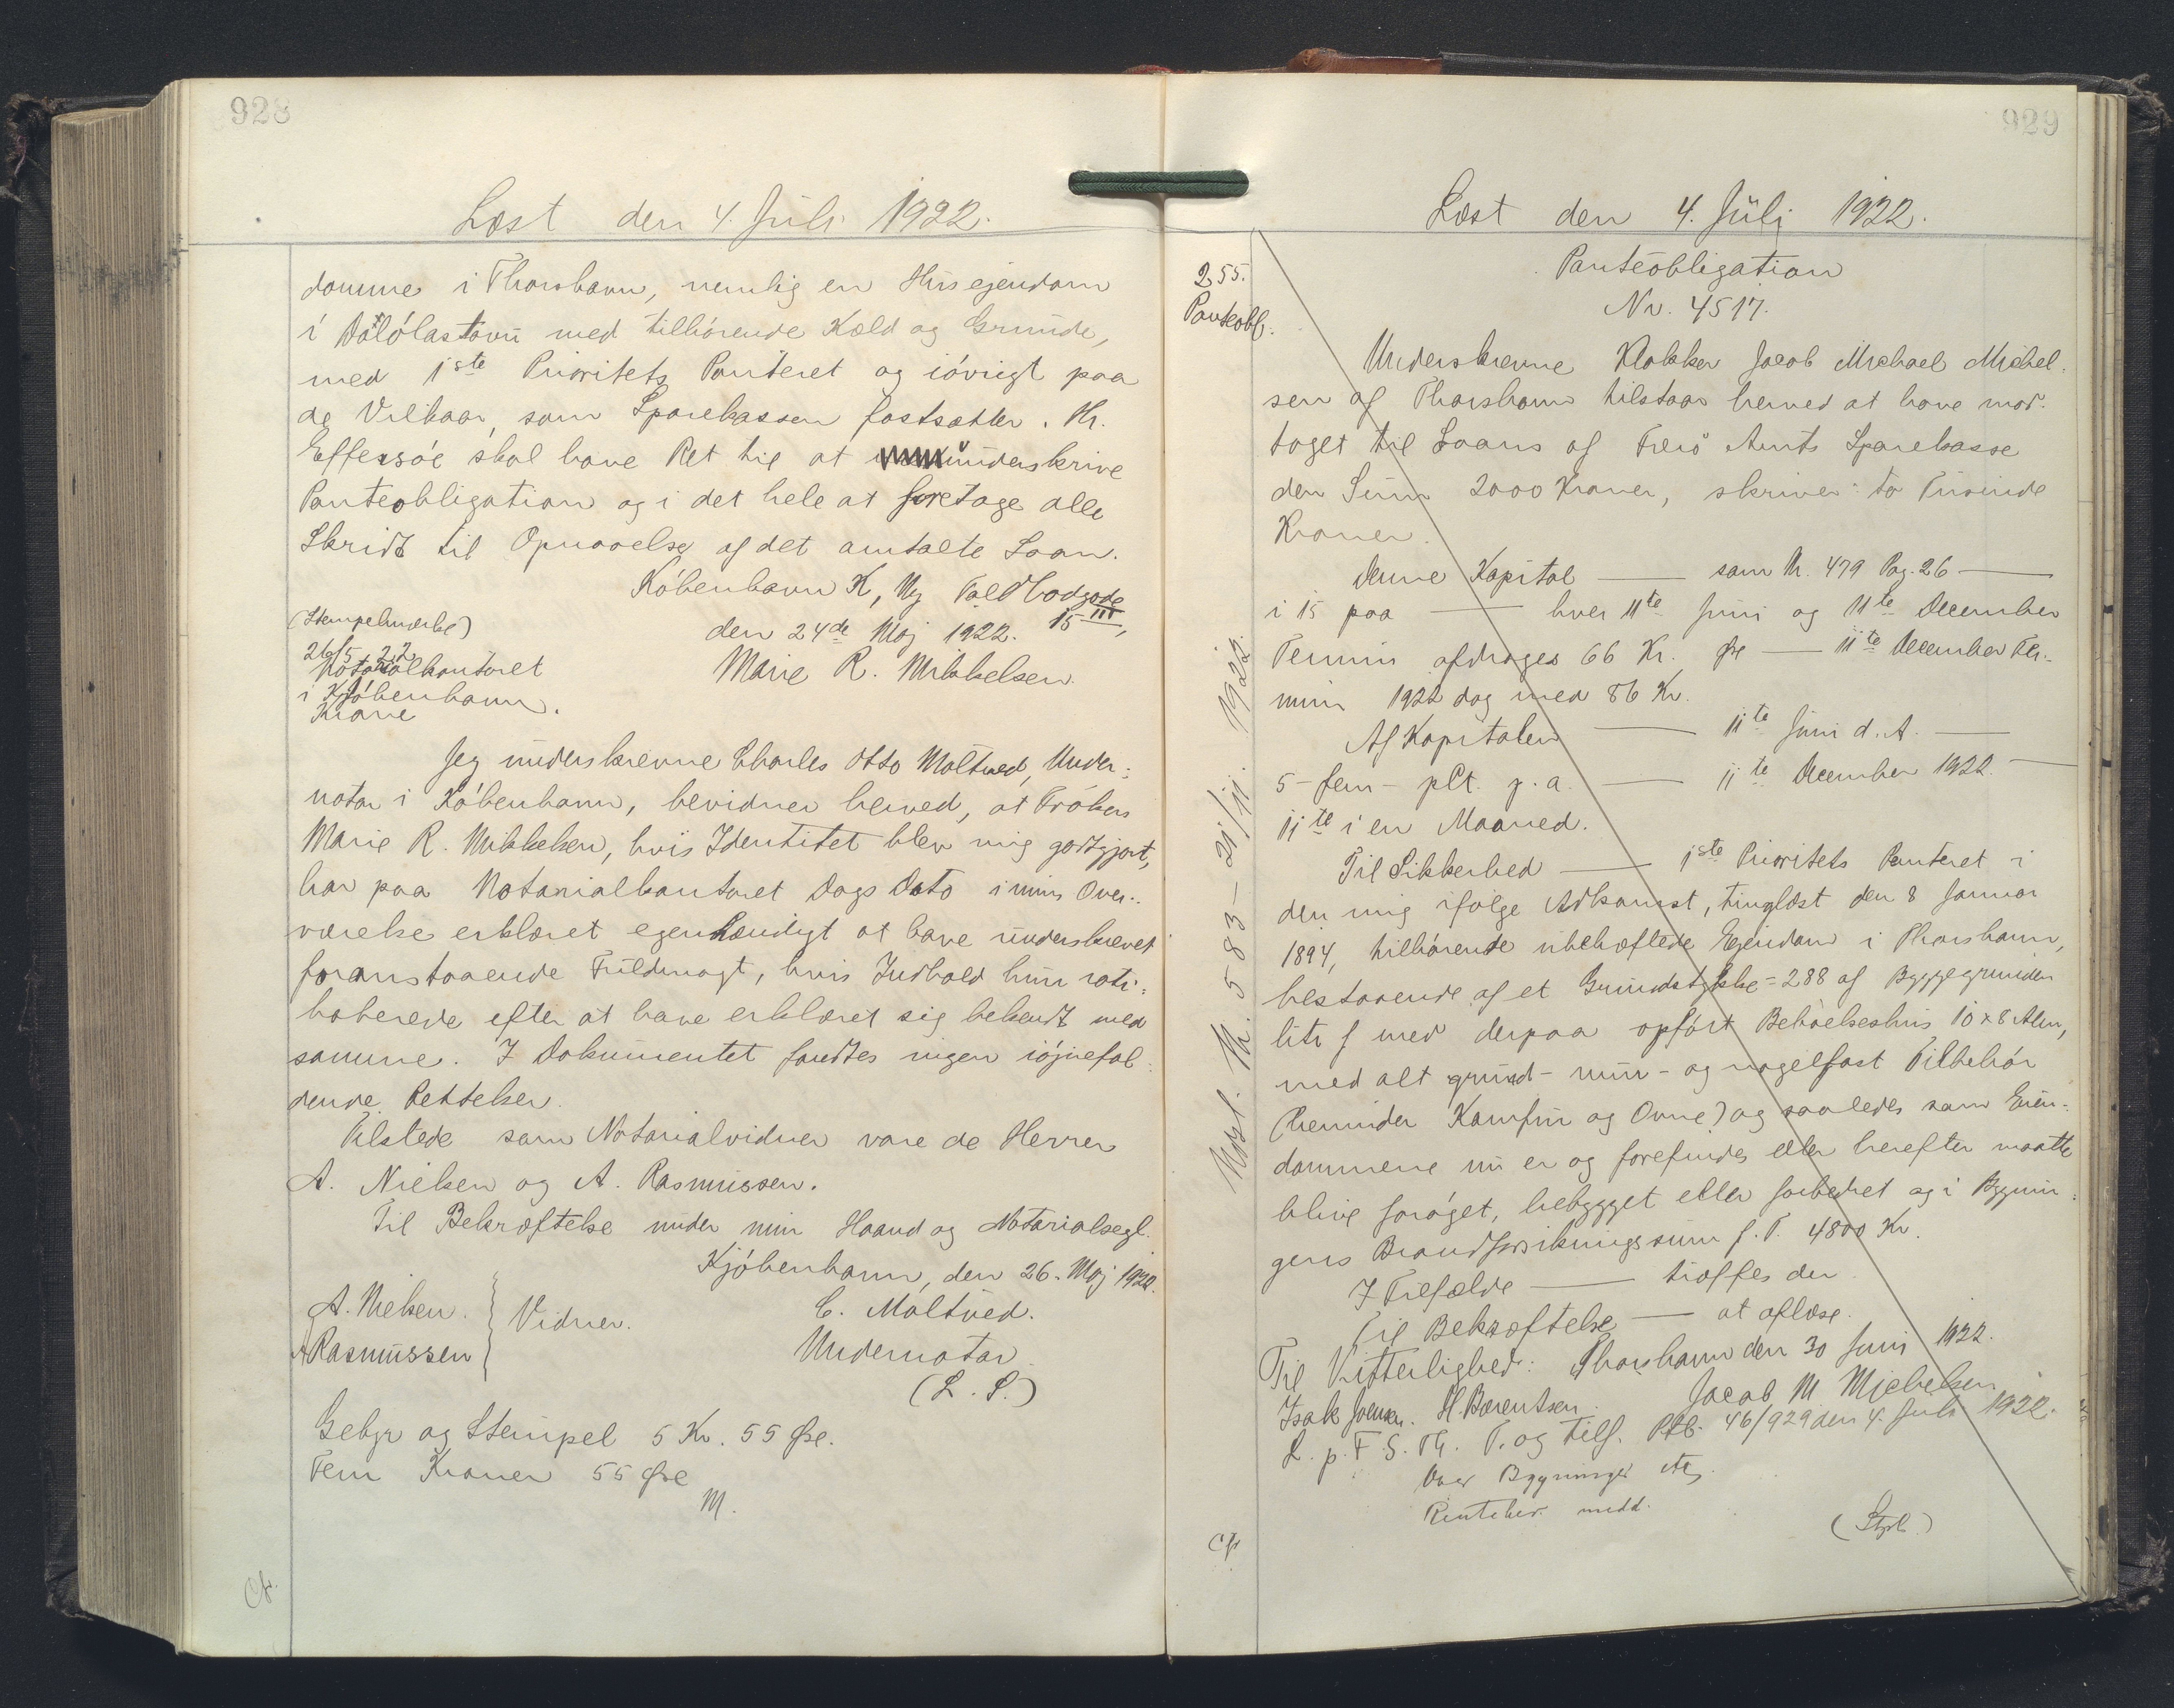 928
Læst den 4. Juli 1922.
domme i Thorshavn, nemlig en Husejendom
i Dálólastovu med tilhørende Kæld og Grunde,
med 1ste Prioritets Panteret og iøvrigt paa
de Vilkaar, som Sparekassen fastsætter. Hr.
Effersøe skal have Ret til at underskrive
Panteobligation og i det hele at foretage alle
Skridt til Opnaaelse af det omtalte Laan.
København K, Ny Toldbodgade
15 III,
(Stempelmærke)
den 24de Maj 1922.
26/5 22
Notarialkontoret
Marie R. Mikkelsen.
i Kjøbenhavn.
Krone
Jeg underskrevne Charles Otto Moltved, Under-
notar i København, bevidner herved, at Frøken
Marie R. Mikkelsen, hvis Identitet blev mig godtgjort,
har paa Notarialkontoret Dags Dato i min Over-
værelse erklæret egenhændigt at have underskrevet
foranstaaende Fuldmagt, hvis Indhold hun rati-
haberede efter at have erklæret sig bekendt med
samme. I Dokumentet fandtes ingen iøjnefal-
dende Rettelser.
Tilstede som Notarialvidner vare de Herrer
A. Nielsen og A. Rasmussen.
Til Bekræftelse under min Haand og Notarialsegl.
Kjøbenhavn, den 26. Maj 1922.
A. Nielsen.
A Rasmussen
Vidner.
C. Moltved.
Undernotar.
(L. S.)
Gebyr og Stempel 5 Kr. 55 Øre.
Fem Kroner 55 Øre
M.
Cfr.
929
Læst den 4. Juli 1922.
255.
Panteobl.
Panteobligation
Nr. 4517.
Underskrevne Klokker Jacob Michael Michel-
sen af Thorshavn tilstaar herved at have mod-
taget til Laans af Færø Amts Sparekasse
den Sum 2000 Kroner, skriver to Tusinde
Kroner.
Denne Kapital — som Nr. 479 Pag. 26 —
i 15 paa — hver 11te Juni og 11te December
Termin afdrages 66 Kr. Øre — 11te December Ter-
min 1922 dog med 86 Kr.
Af Kapitalen — 11te Juni d. A. —
5 - fem - pCt. p. a. — 11te December 1922. —
11te i en Maaned.
Til Sikkerhed — 1ste Prioritets Panteret i
den mig ifølge Adkomst, tinglæst den 8 Januar
1894, tilhørende ubehæftede Ejendom i Thorshavn,
bestaaende af et Grundstykke = 288 af Byggegrunden
litr f med derpaa opført Beboelseshus 10 x 8 Alen,
med alt grund- mur- og nagelfast Tilbehør
(herunder Komfur og Ovne) og saaledes som Ejen-
dommene nu er og forefindes eller herefter maatte
blive forøget, bebygget eller forbedret og i Bygnin-
gens Brandforsikringssum f. T. 4800 Kr.
I Tilfælde — træffes der
Til Bekræftelse — at aflæse.
Thorshavn den 30 Juni 1922.
Til Vitterlighed:
Jacob M Michelsen
Isak Joensen. H. Barentsen.
L. p. F. S. Th. T. og tilf. Ptb. 46/929 den 4. Juli 1922.
Over Bygninger Att.
Rentebev. medd.
(Styrb.)
Cfr
Udsl. Nr. 583 - 21/11. 1922.